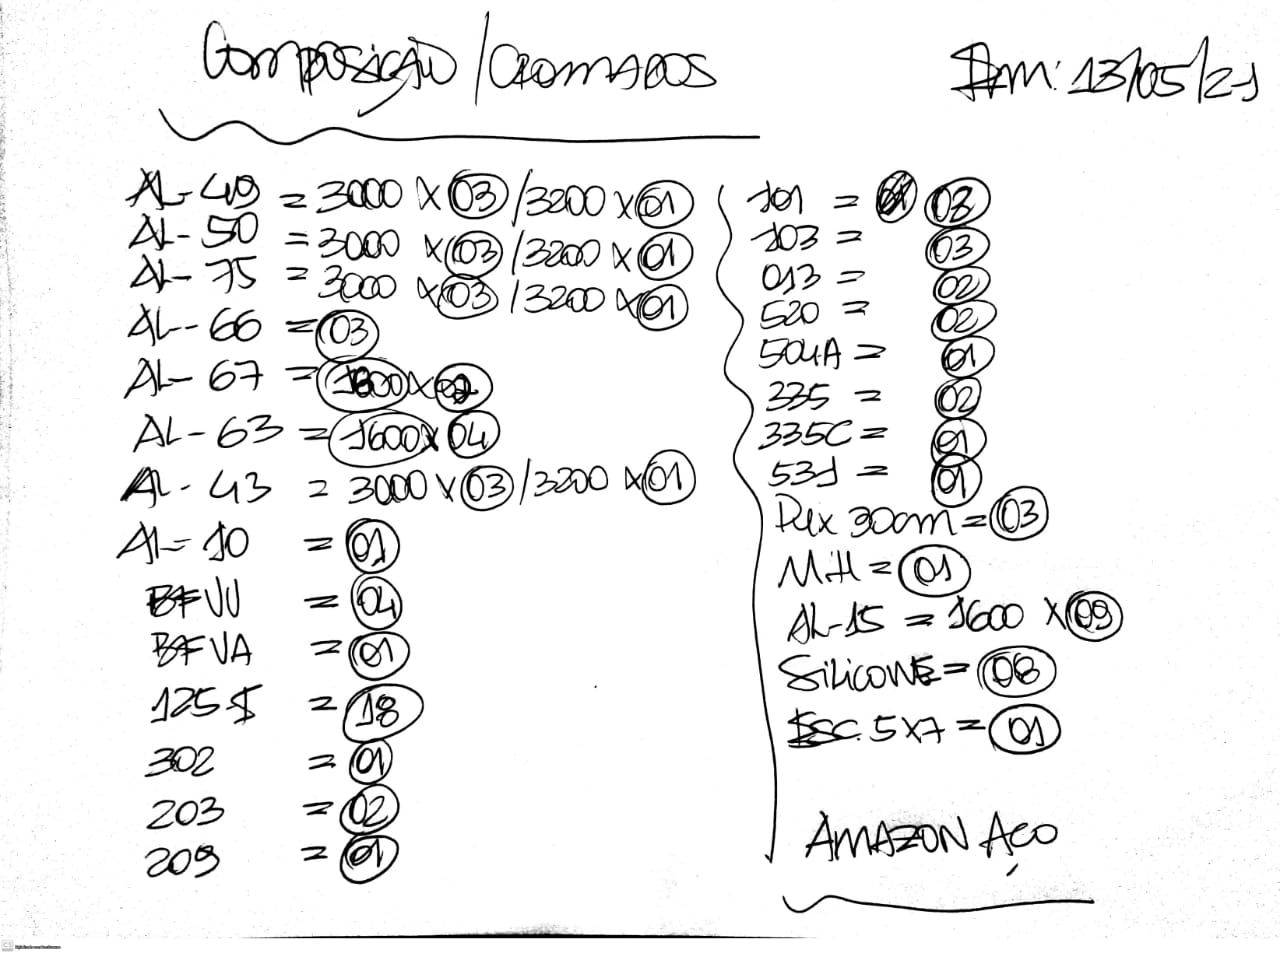 Composição / CROMADOS
Em: 13/05/21
AL-49 = 3000 x 03 / 3200 x 01
AL-50 = 3000 x 03 / 3200 x 01
AL-75 = 3000 x 03 / 3200 x 01
AL-66 = 03
AL-67 = 1800 x 02
AL-63 = 1600 x 04
AL-43 = 3000 x 03 / 3200 x 01
AL-10 = 01
BFVU = 04
BFVA = 01
125 = 18
302 = 01
203 = 02
209 = 01
101 = 03
103 = 03
013 = 02
520 = 02
504A = 01
335 = 02
335C = 01
531 = 01
30cm = 03
= 01
AL-15 = 1600 x 09
SiLicoNE = 08
ESC. 5x7 = 01
AMAZON AÇO